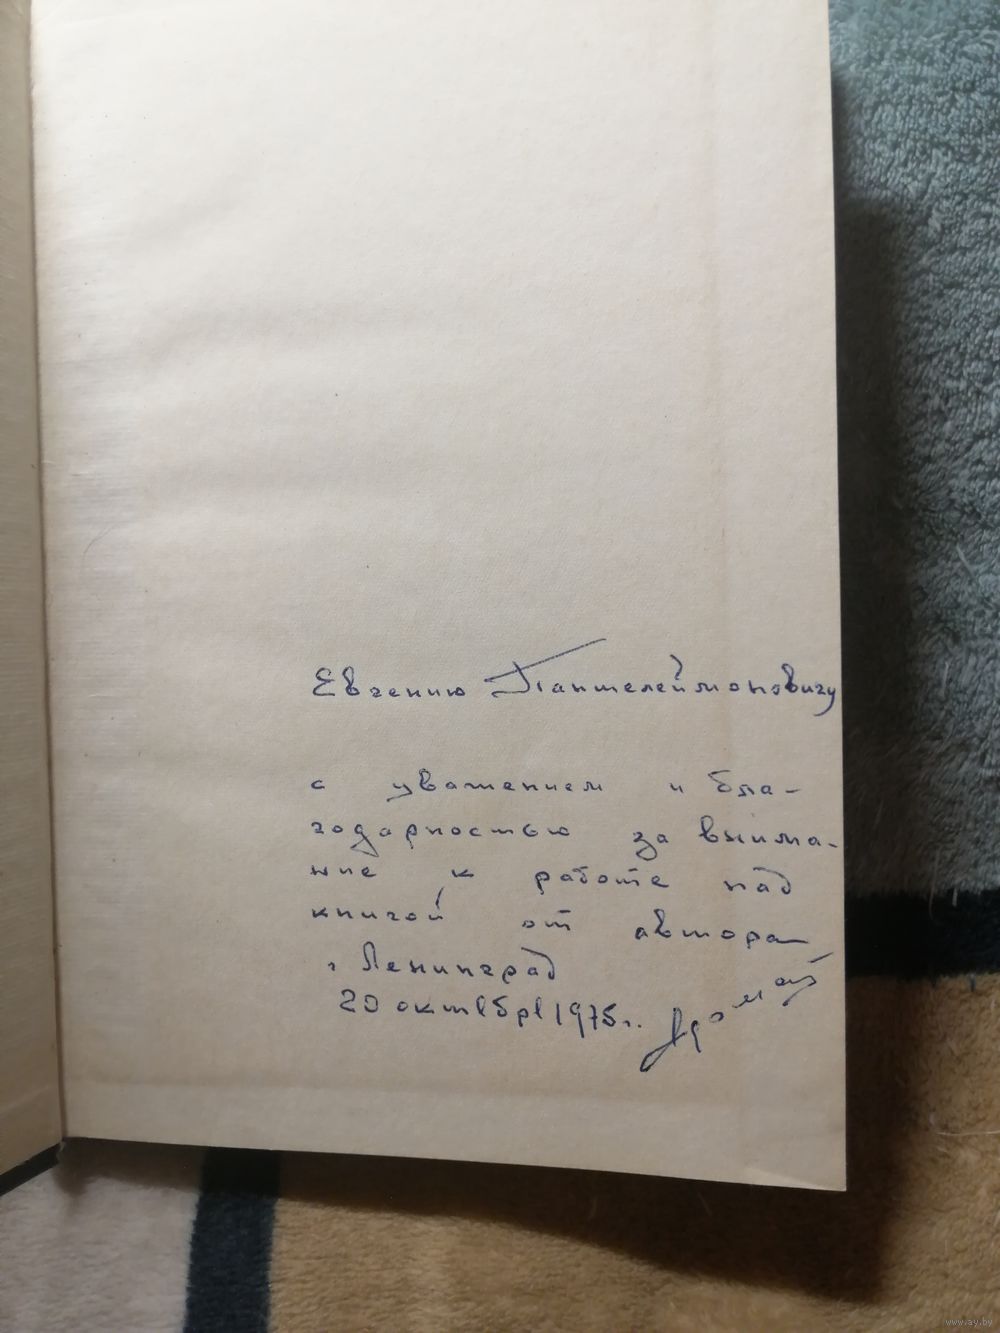 Евгению Пантелеймоновичу
с уважением и бла-
годарностью за внима-
ние к работе над
книгой от автора
г Ленинград
20 октября 1975г.
www.ay.by